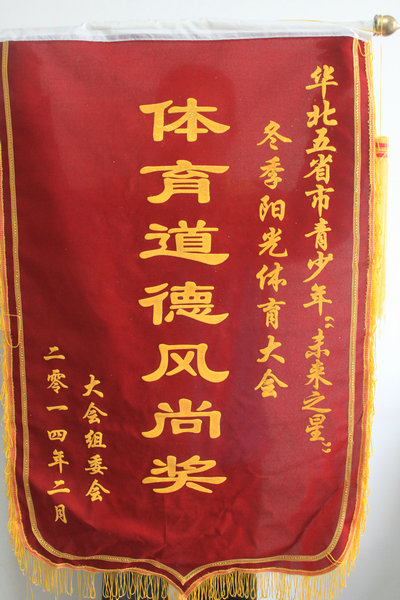 华北五省市青少年“未来之星”
冬季阳光体育大会
体育道德风尚奖
大会组委会
二零一四年二月